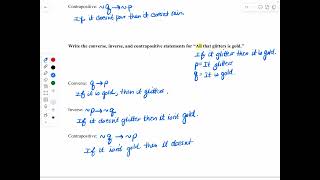 Contrapositive: ~q → ~p
If it doesnt pour then it doesnt rain.
Write the converse, inverse, and contrapositive statements for "All that glitters is gold."
If it glitters then it is gold.
p = It glitters
q = It is gold.
Converse: q → p
If it is gold, then it glitters.
Inverse: ~p → ~q
If it doesnt glitter then it isnt gold.
Contrapositive: ~q → ~p
If it isnt gold then it doesnt